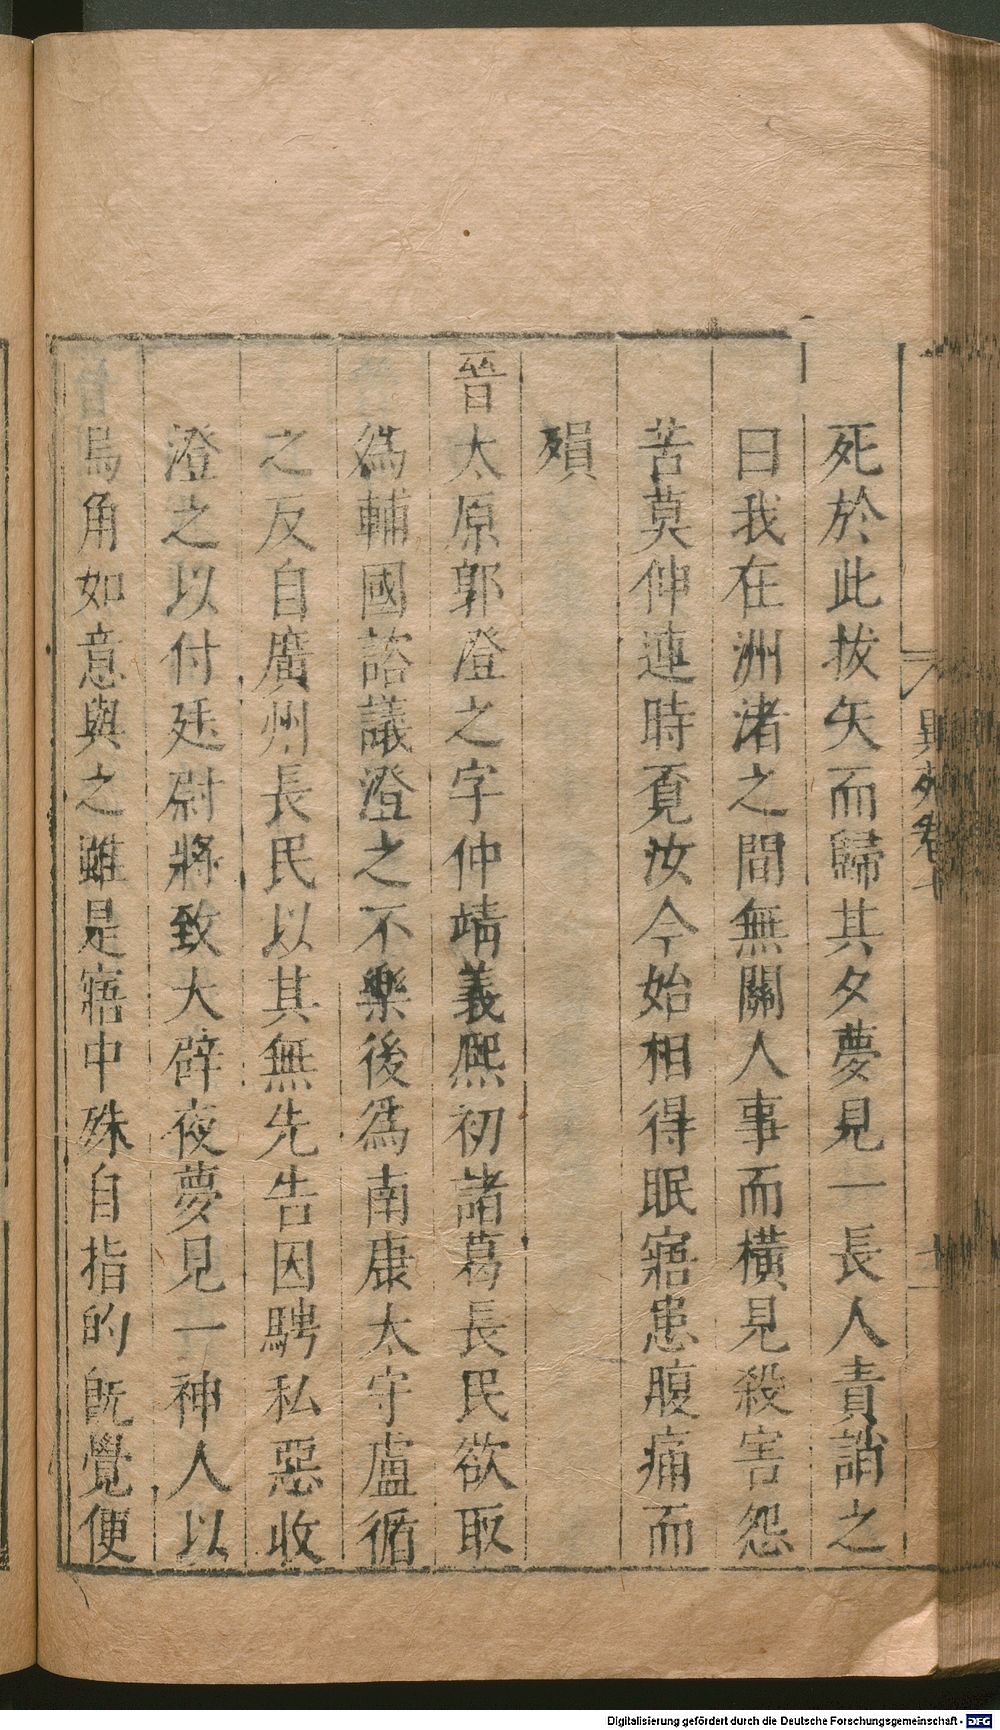 死於此拔矢而歸其夕夢見一長人責誚之
曰我在洲渚之間無關人事而橫見殺害怨
苦莫伸連時覔汝今始相得眠寤患腹痛而
殞
晉太原郭澄之字仲靖義熙初諸葛長民欲取
爲輔國諮議澄之不樂後爲南康太守盧循
之反自廣州長民以其無先告因騁私惡收
澄之以付廷尉將致大辟夜夢見一神人以
烏角如意與之雖是寤中殊自指的旣覺便
異苑卷十
十一
Digitalisierung gefördert durch die Deutsche Forschungsgemeinschaft - DFG